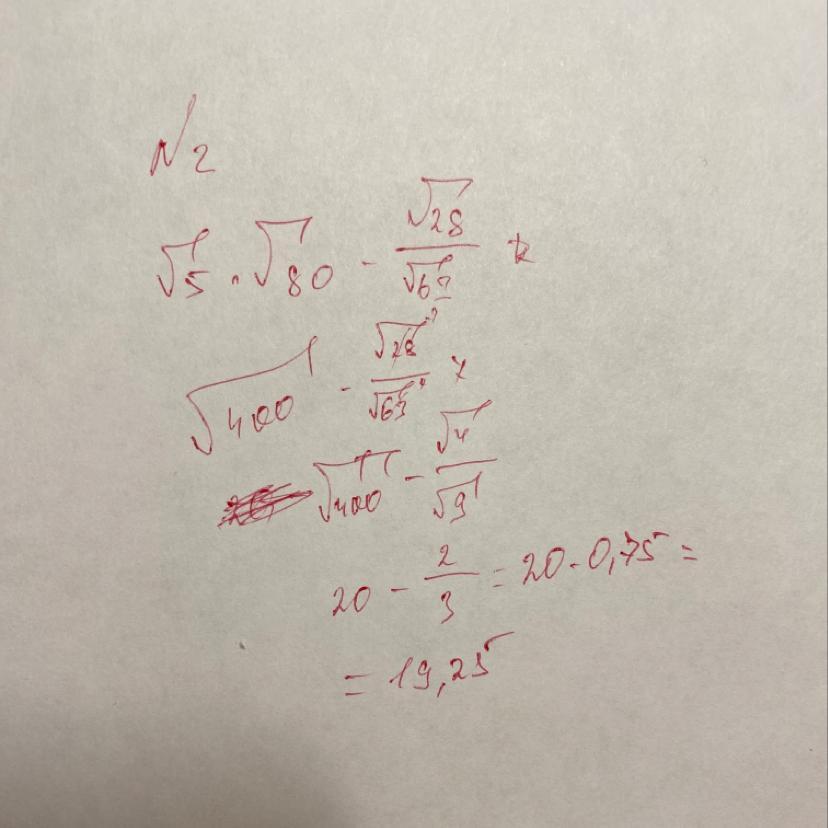 N2
√5 · √80 - √28/√63 =
√400 - √28/√63 =
√400 - √4/√9
20 - 2/3 = 20 - 0,75 =
= 19,25